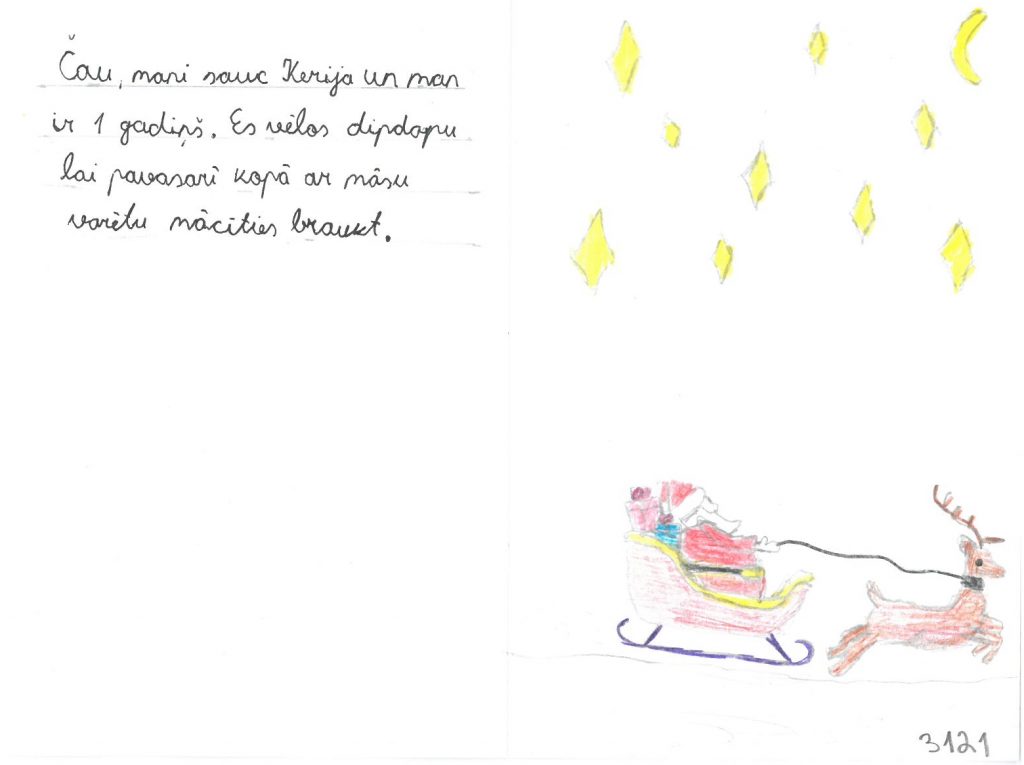 Čau, mani sauc Kerija un man
ir 1 gadiņš. Es vēlos dipdapu
lai pavasarī kopā ar māsu
varētu mācīties braukt.
3121